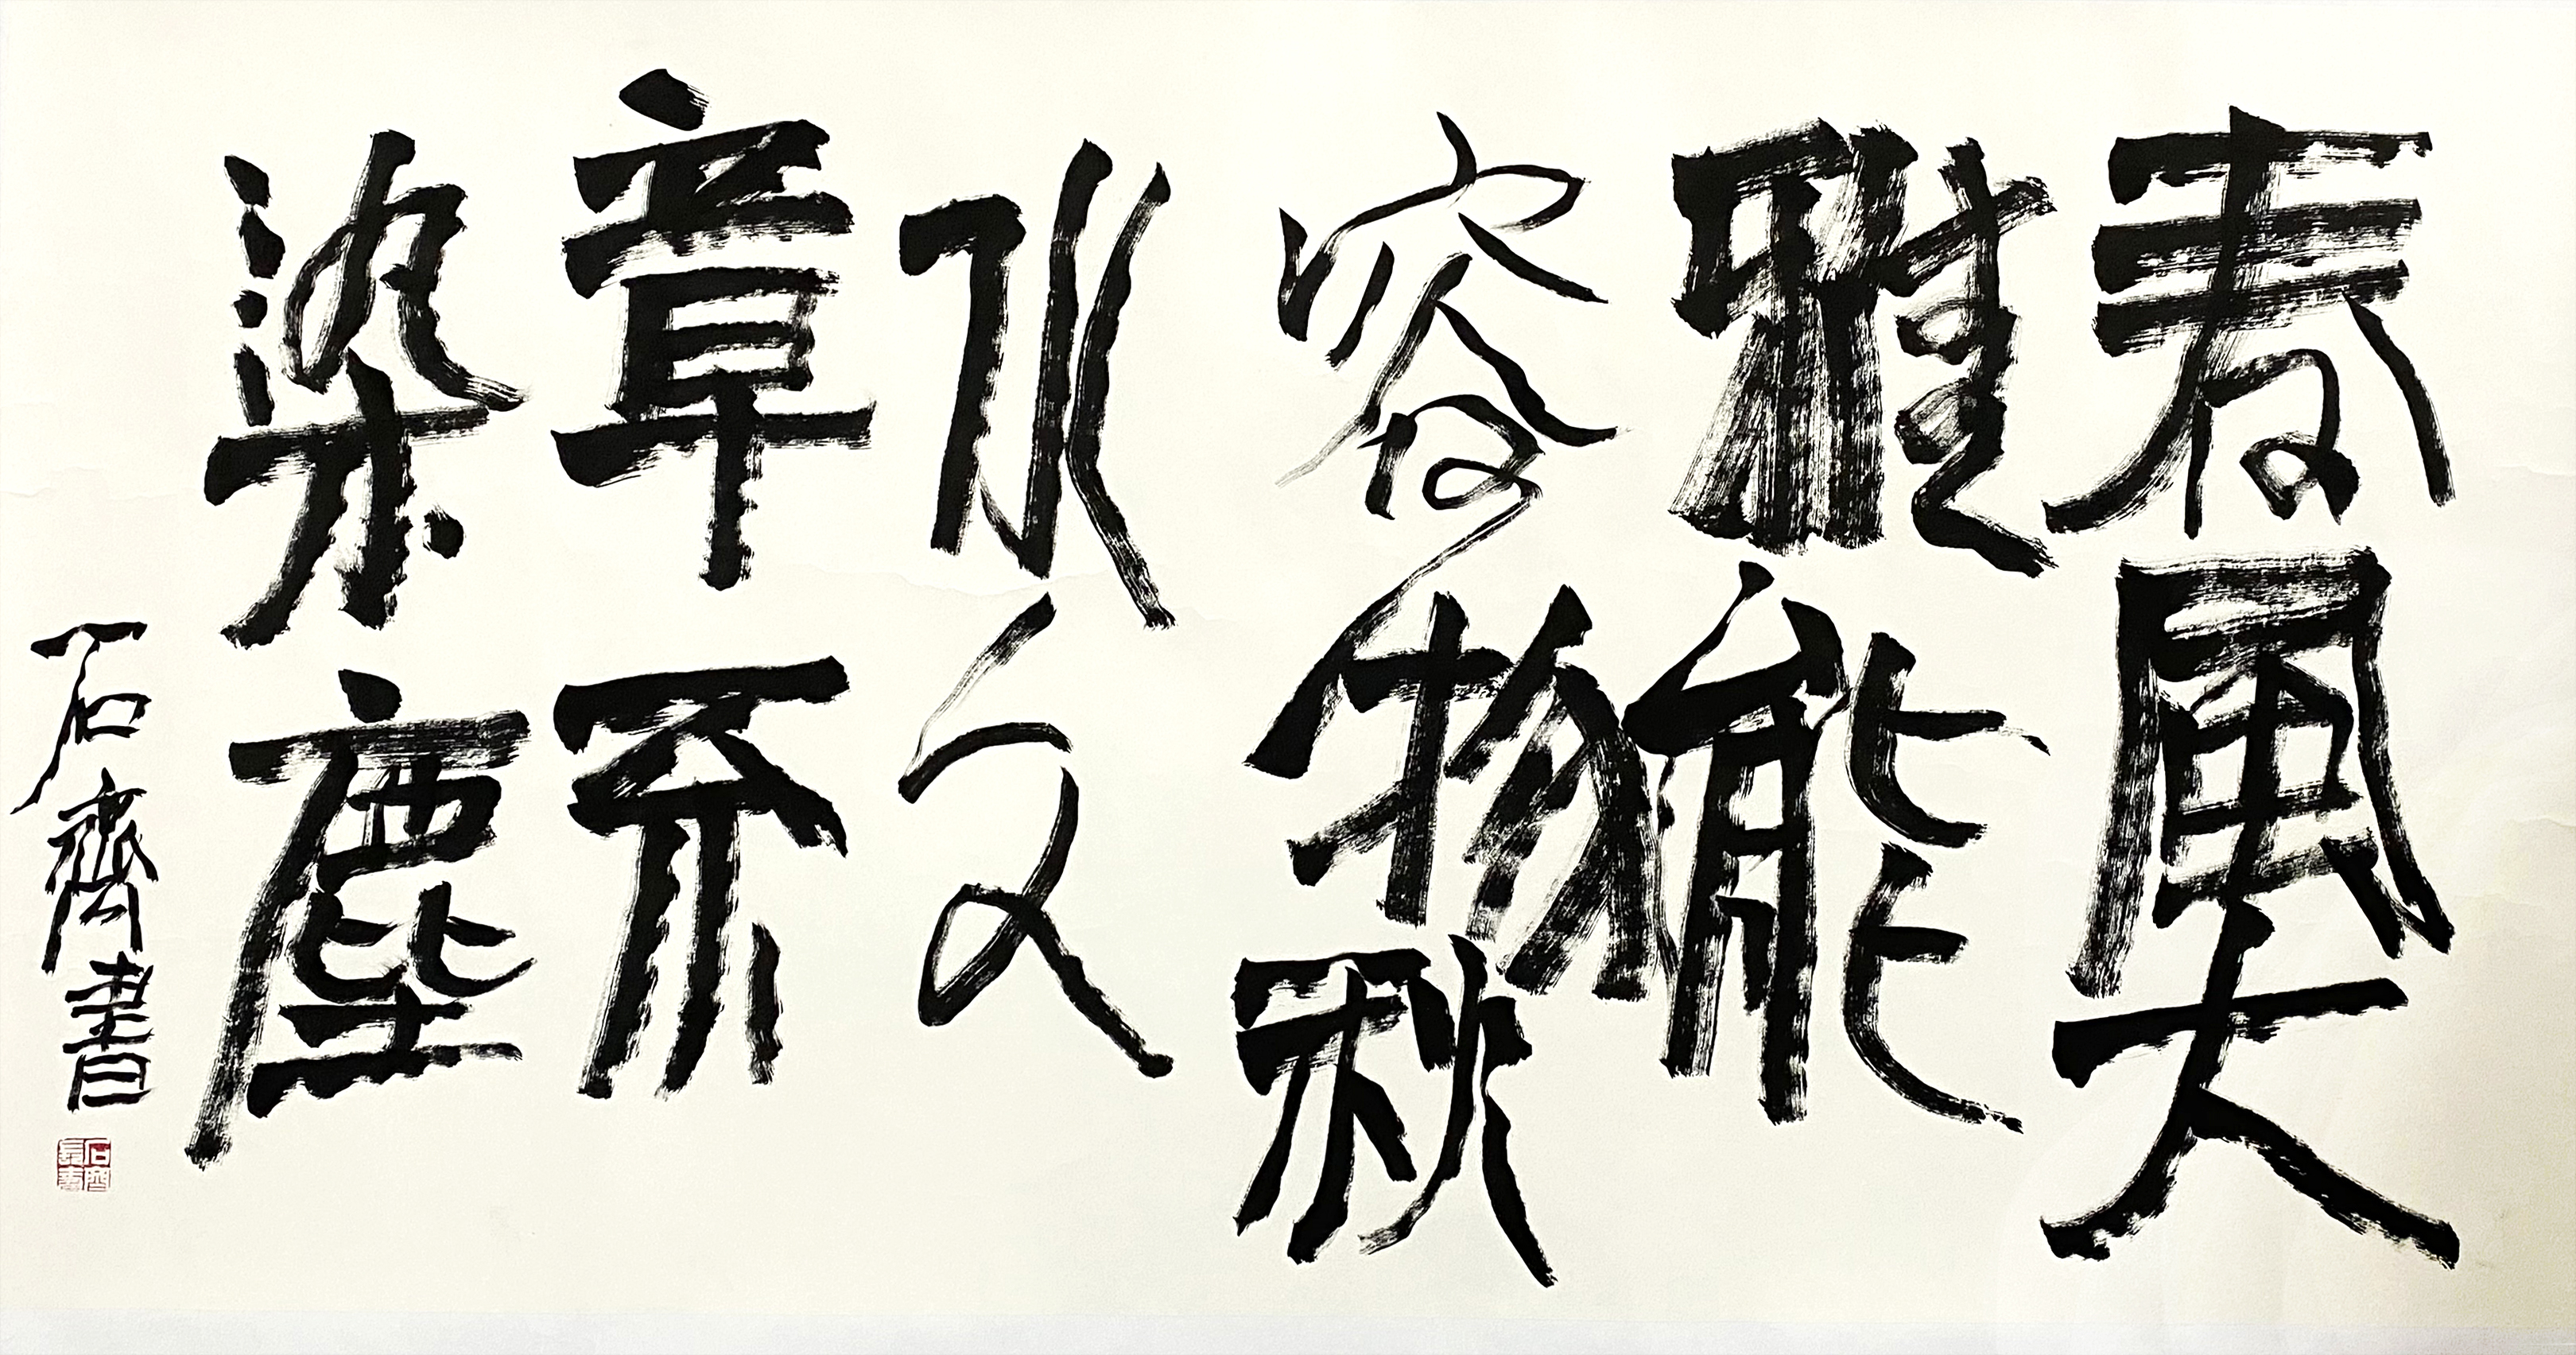 春風大
雅能
容物秋
水文
章不
染塵
石齊書
石齊
長壽